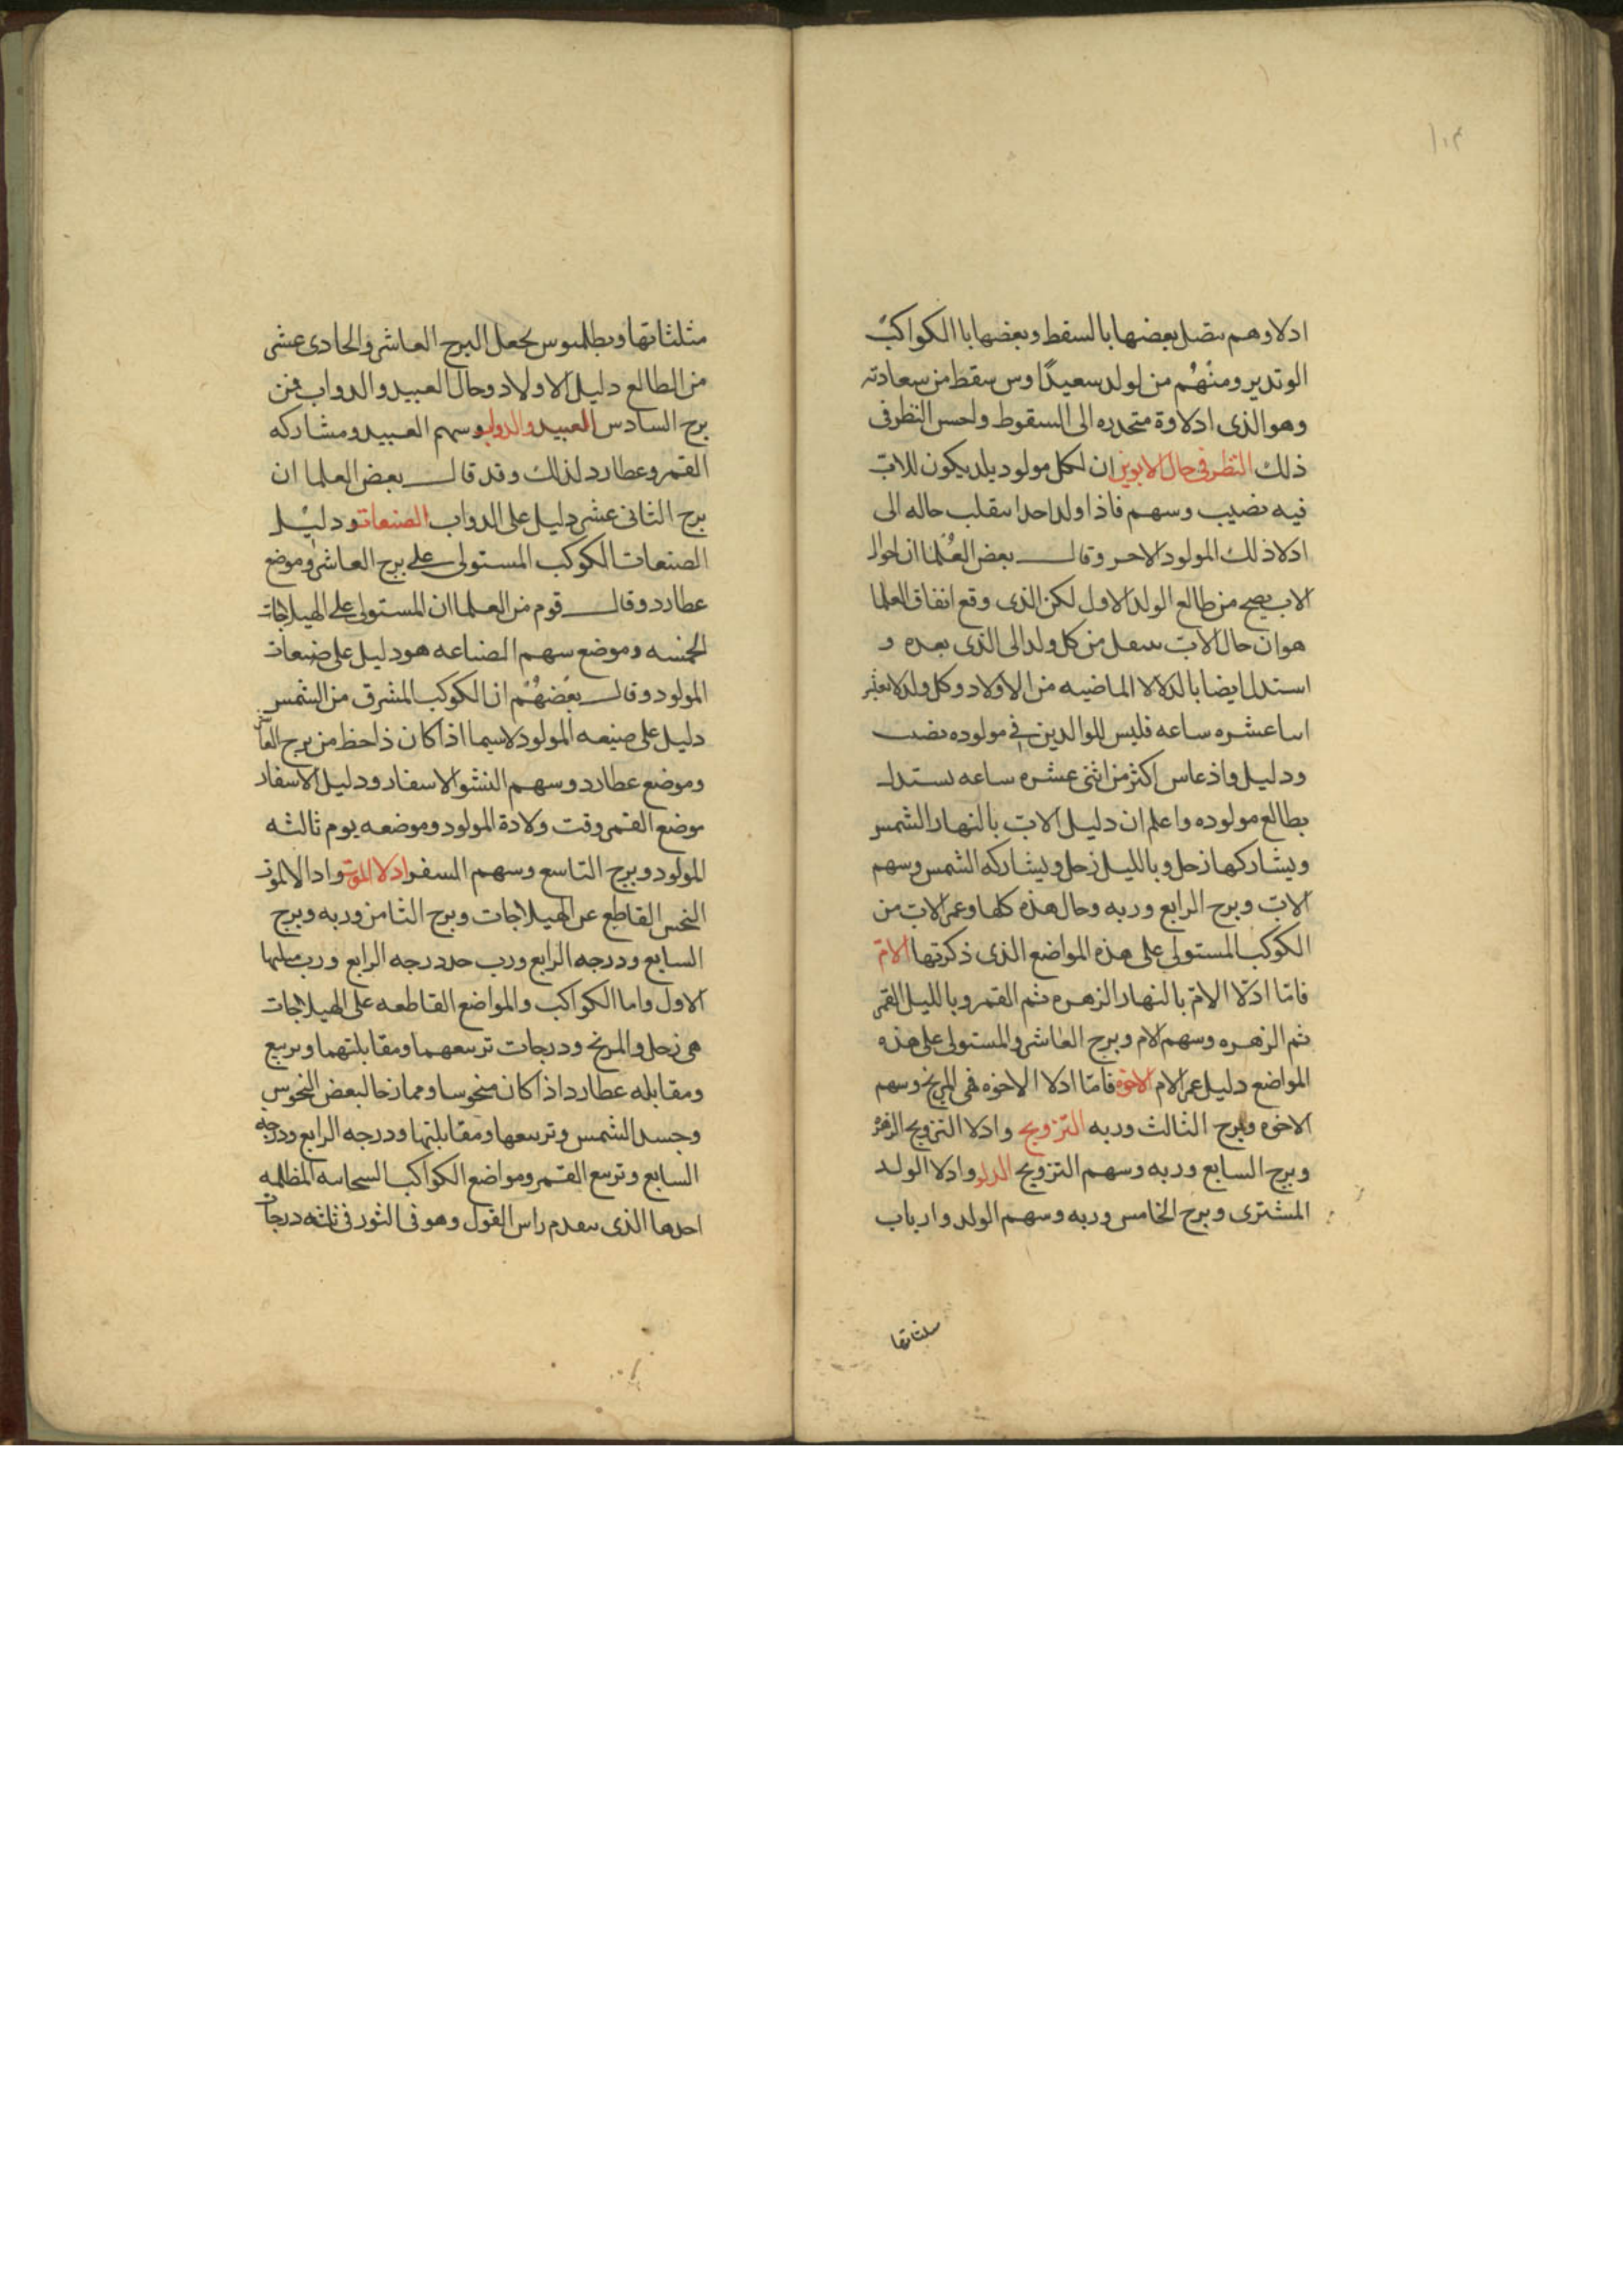 ادلاوهم ىتصل بعضها بالسقط وبعضها باالكواكب
الوتدىر ومنهُم من لولد سعيدًا وىس ىىقط من سعادته
وهو الذى ادلاوة متحدره الى السقوط واحسن النظر فى
ذلك النظر فى حال الابوين ان لكل مولود يلد يكون للاب
فيه نصيب وسهم فاذا ولد احدا ىىقلب حاله الى
ادلا ذلك المولود الاحر وقال بعض العُلما ان احوال
الاب يصح من طالع الولد الاول لكن الذى وقع اتفاق العلما
هو ان حال الاب ىىىقل من كل ولد الى الذى بعده و
استدلـ ايضا بالدلالا الماضيه من الاولاد وكل ولد لا يعىر
اىىا عشره ساعه فليس للوالدين فى مولوده نصىب
ودليل واذ عاس اكثر من اثنى عشره ساعه ىستدل
بطالع مولوده واعلم ان دليل الاب بالنهار الشمس
ويشاركها زحل وبالليل زحل ويشاركه الشمس وسهم
الاب وبرج الرابع وربه وحال هذه كلها وعمر الاب من
الكوكب المستولى على هذه المواضع الذى ذكرتها الامّ
فامّا ادلّا الامّ بالنهار الزهره ثم القمر وبالليل القمر
ثم الزهره وسهم الام وبرج العاشر والمستولى على هذه
المواضع دليل عمر الام الاخوة فامّا ادلا الاخوه فهى المريخ وسهم
الاخوه وبرج الثالث وربه التزويج وادلا التزويج الزهره
وبرج السابع وربه وسهم التزويج الولد وادلا الولد
المشترى وبرج الخامس وربه وسهم الولد وارباب
مىلثاتها
مثلثاتها وبطلميوس يجعل البرج العاشر والحادى عشر
من الطالع دليل الاولاد وحال العبيد والدواب فمن
برج السادس العبيد والدواب وسهم العبيد ومشاركه
القمر وعطارد لذلك وقد قال بعض العلما ان
برج الثانى عشر دليل على الدواب الصنعات ودليل
الصنعات الكوكب المستولى على برج العاشر وموضع
عطارد وقال قوم من العلما ان المستولى على الهيلاجات
الخمسه وموضع سهم الصناعه هو دليل على صنعات
المولود وقال بعضهُم ان الكوكب المشرق من الشمس
دليل على صنعه المولود لاسيما اذا كان ذا حظ من برج العاشر
وموضع عطارد وسهم النشو الاسفار ودليل الاسفار
موضع القمر وقت ولادة المولود وموضعه يوم ثالثه
المولود وبرج التاسع وسهم السفر ادلا الموت وادالا الموت
النحس القاطع عن الهيلاجات وبرج الثامن وربه وبرج
السابع ودرجه الرابع ورب حد درجه الرابع ورب مىلىها
الاول واما الكواكب والمواضع القاطعه على الهيلاجات
هى زحل والمريخ ودرجات تربيعهما ومقابلتهما وتربيع
ومقابله عطارد اذا كان منحوسا وممازحا لبعض النحوس
وجسد الشمس وتربيعها ومقابلتها ودرجه الرابع ودرجه
السابع وتربيع القمر ومواضع الكواكب السحابيه المظلمه
احدها الذى ىىقدم راس الغول وهو فى الثور فى ثلثه درجات